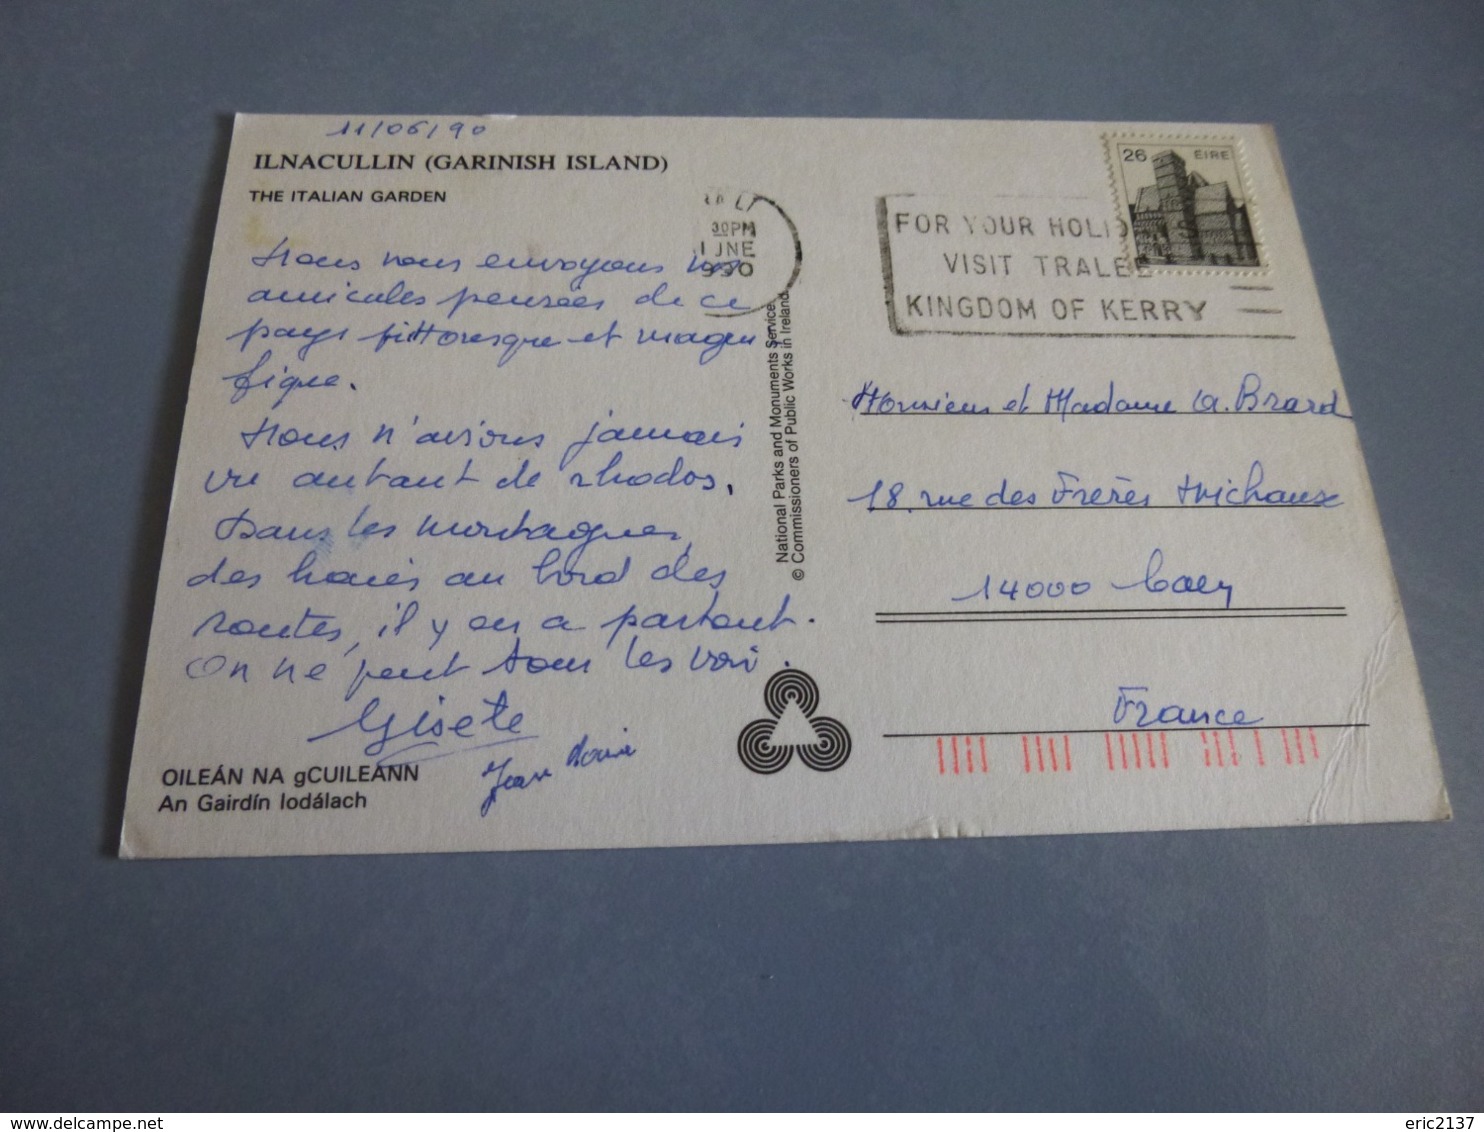 11/06/90
ILNACULLIN (GARINISH ISLAND)
THE ITALIAN GARDEN
Nous nous envoyons nos
amicales pensées de ce
pays pittoresque et magni
fique.
Nous n'avions jamais
vu autant de rhodos.
Dans les montagnes,
des haies au bord des
routes, il y en a partout.
On ne peut tous les voir.
Gisete
Jean
OILEÁN NA gCUILEANN
An Gairdín Iodálach
30PM
JNE
990
National Parks and Monuments Service.
© Commissioners of Public Works in Ireland.
FOR YOUR HOLID
VISIT TRALEE
KINGDOM OF KERRY
26 ÉIRE
Monsieur et Madame A. Brard
18, rue des Frères Michaux
14000 Caen
France
delcampe.net
eric2137